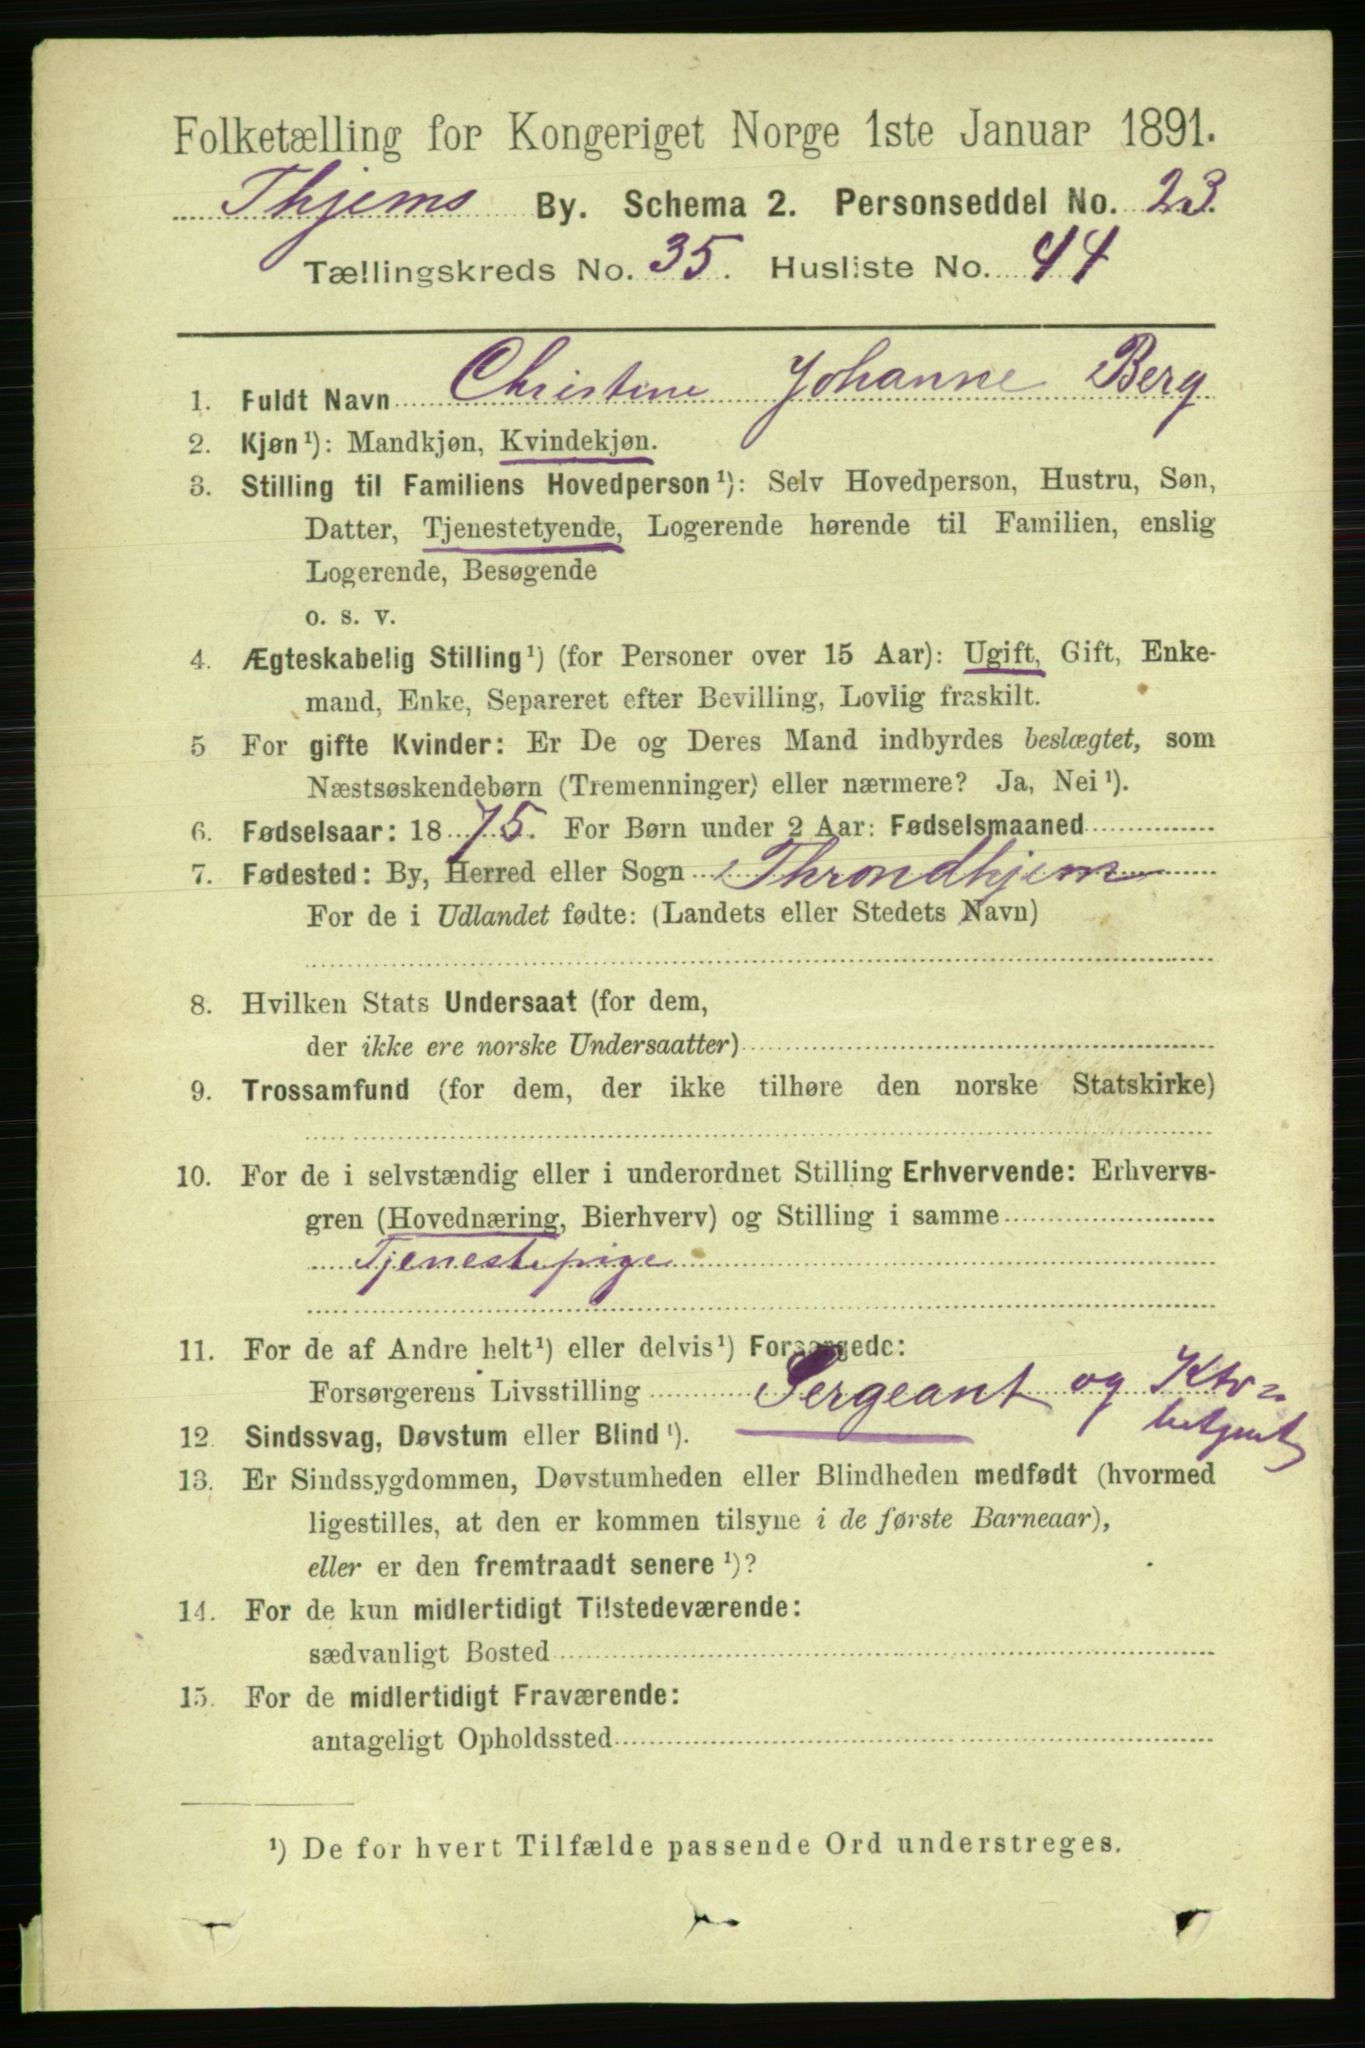 Folketælling for Kongeriget Norge 1ste Januar 1891.
Thjems By. Schema 2. Personseddel No. 23.
Tællingskreds No. 35. Husliste No. 44
1. Fuldt Navn Christine Johanne Berg
2. Kjøn¹): Mandkjøn, Kvindekjøn.
3. Stilling til Familiens Hovedperson¹): Selv Hovedperson, Hustru, Søn,
Datter, Tjenestetyende, Logerende hørende til Familien, enslig
Logerende, Besøgende
o. s. v.
4. Ægteskabelig Stilling¹) (for Personer over 15 Aar): Ugift, Gift, Enke-
mand, Enke, Separeret efter Bevilling, Lovlig fraskilt.
5 For gifte Kvinder: Er De og Deres Mand indbyrdes beslægtet, som
Næstsøskendebørn (Tremenninger) eller nærmere? Ja, Nei¹).
6. Fødselsaar: 1875. For Børn under 2 Aar: Fødselsmaaned
7. Fødested: By, Herred eller Sogn Throndhjem
For de i Udlandet fødte: (Landets eller Stedets Navn)
8. Hvilken Stats Undersaat (for dem,
der ikke ere norske Undersaatter)
9. Trossamfund (for dem, der ikke tilhøre den norske Statskirke)
10. For de i selvstændig eller i underordnet Stilling Erhvervende: Erhvervs-
gren (Hovednæring, Bierhverv) og Stilling i samme
Tjenestepige
11. For de af Andre helt¹) eller delvis¹) Forsørgede:
Forsørgerens Livsstilling Sergeant og Ktr=
betjent
12. Sindssvag, Døvstum eller Blind¹).
13. Er Sindssygdommen, Døvstumheden eller Blindheden medfødt (hvormed
ligestilles, at den er kommen tilsyne i de første Barneaar),
eller er den fremtraadt senere¹)?
14. For de kun midlertidigt Tilstedeværende:
sædvanligt Bosted
15. For de midlertidigt Fraværende:
antageligt Opholdssted
¹) De for hvert Tilfælde passende Ord understreges.